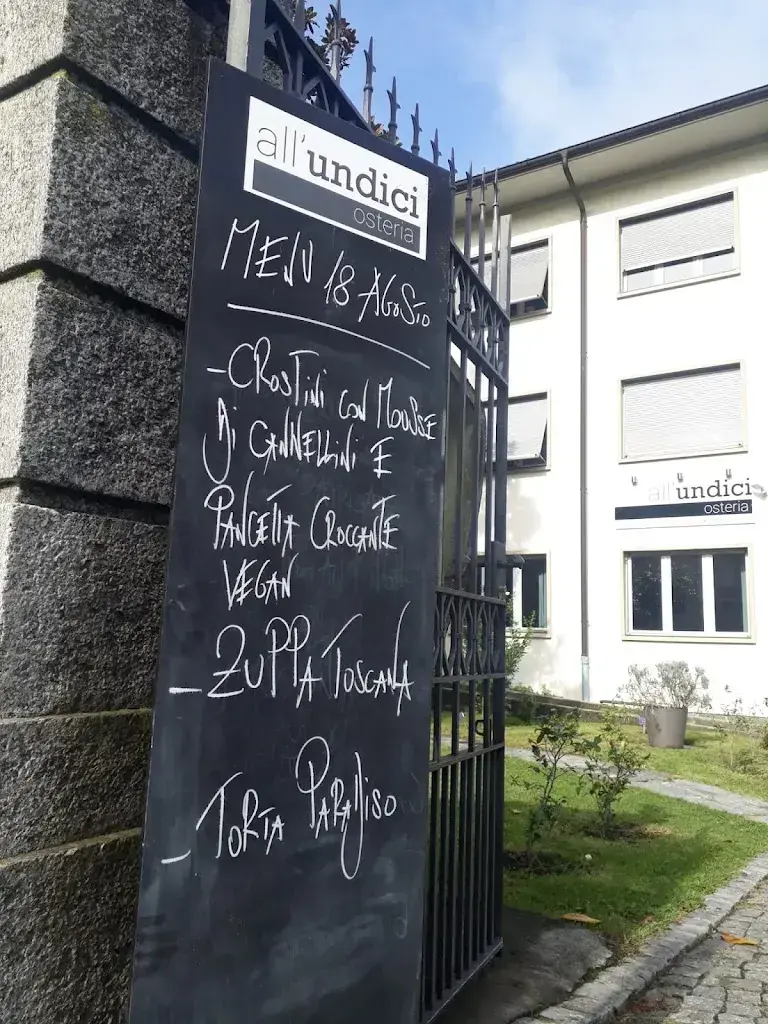 all'undici
osteria
MENU 18 AGOSTO
- CROSTINI CON MOUSSE
DI CANNELLINI E
PANCETTA CROCCANTE
VEGAN
- ZUPPA TOSCANA
- TORTA PARADISO
all'undici
osteria